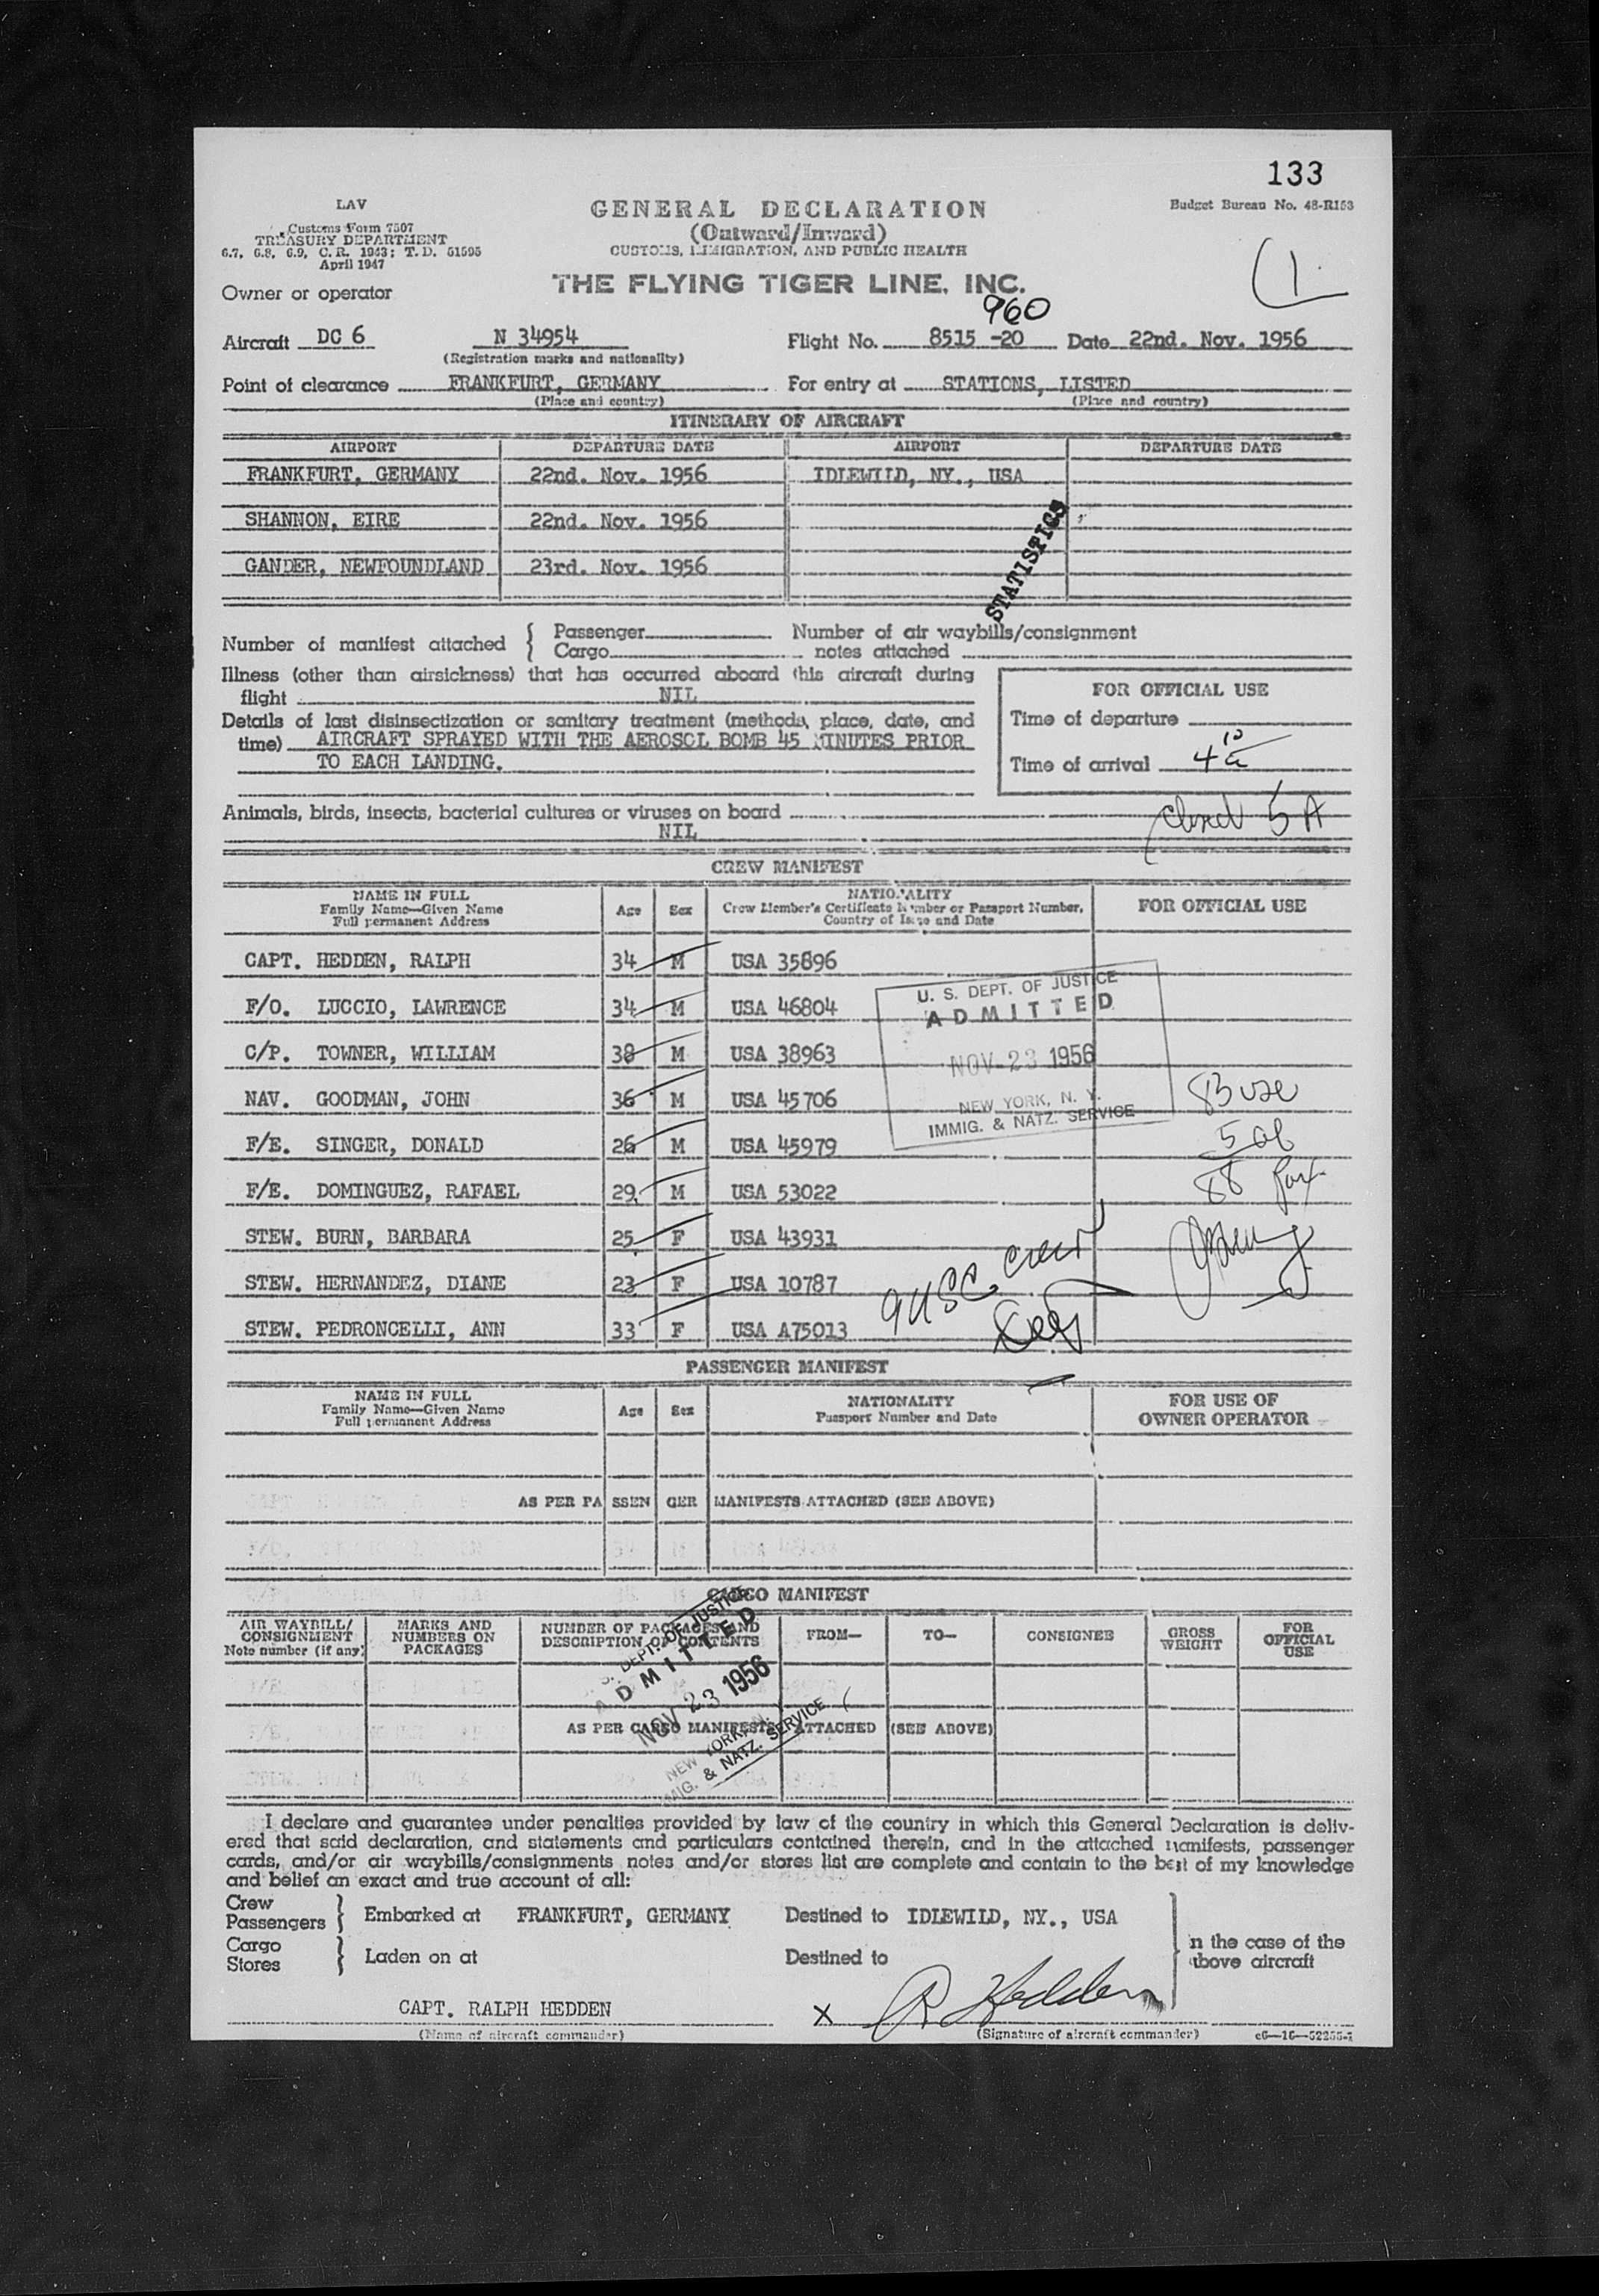 133
LAV
Customs Form 7507
TREASURY DEPARTMENT
6.7, 6.8, 6.9, C. R. 1943; T. D. 51595
April 1947
GENERAL DECLARATION
(Outward/Inward)
CUSTOMS, IMMIGRATION, AND PUBLIC HEALTH
Budget Bureau No. 48-R153
1
Owner or operator
THE FLYING TIGER LINE, INC.
960
Aircraft DC 6 N 34954 Flight No. 8515 -20 Date 22nd. Nov. 1956
(Registration marks and nationality)
Point of clearance FRANKFURT, GERMANY For entry at STATIONS, LISTED
(Place and country) (Place and country)
ITINERARY OF AIRCRAFT
AIRPORT DEPARTURE DATE AIRPORT DEPARTURE DATE
FRANKFURT, GERMANY 22nd. Nov. 1956 IDLEWILD, NY., USA
SHANNON, EIRE 22nd. Nov. 1956
GANDER, NEWFOUNDLAND 23rd. Nov. 1956
STATISTICS
Number of manifest attached { Passenger Number of air waybills/consignment
Cargo notes attached
Illness (other than airsickness) that has occurred aboard this aircraft during
flight NIL
Details of last disinsectization or sanitary treatment (methods, place, date, and
time) AIRCRAFT SPRAYED WITH THE AEROSOL BOMB 45 MINUTES PRIOR
TO EACH LANDING.
FOR OFFICIAL USE
Time of departure
Time of arrival 4 10 a
Animals, birds, insects, bacterial cultures or viruses on board
NIL
closed 5 A
CREW MANIFEST
NAME IN FULL
Family Name—Given Name
Full permanent Address
Age Sex
NATIONALITY
Crew Member's Certificate Number or Passport Number,
Country of Issue and Date
FOR OFFICIAL USE
CAPT. HEDDEN, RALPH 34 M USA 35896
F/O. LUCCIO, LAWRENCE 34 M USA 46804
C/P. TOWNER, WILLIAM 38 M USA 38963
NAV. GOODMAN, JOHN 36 M USA 45706
F/E. SINGER, DONALD 26 M USA 45979
F/E. DOMINGUEZ, RAFAEL 29 M USA 53022
STEW. BURN, BARBARA 25 F USA 43931
STEW. HERNANDEZ, DIANE 23 F USA 10787
STEW. PEDRONCELLI, ANN 33 F USA A75013
U. S. DEPT. OF JUSTICE
ADMITTED
NOV 23 1956
NEW YORK, N. Y.
IMMIG. & NATZ. SERVICE
83 usc
5 al
88 pax
9 USC crew
PASSENGER MANIFEST
NAME IN FULL
Family Name—Given Name
Full permanent Address
Age Sex
NATIONALITY
Passport Number and Date
FOR USE OF
OWNER OPERATOR
AS PER PASSENGER MANIFESTS ATTACHED (SEE ABOVE)
CARGO MANIFEST
AIR WAYBILL/
CONSIGNMENT
Note number (if any)
MARKS AND
NUMBERS ON
PACKAGES
NUMBER OF PACKAGES AND
DESCRIPTION OF CONTENTS
FROM— TO— CONSIGNEE
GROSS
WEIGHT
FOR
OFFICIAL
USE
S. DEPT. OF JUSTICE
ADMITTED
NOV 23 1956
NEW YORK, N. Y
MIG. & NATZ. SERVICE
AS PER CARGO MANIFESTS ATTACHED (SEE ABOVE)
I declare and guarantee under penalties provided by law of the country in which this General Declaration is deliv-
ered that said declaration, and statements and particulars contained therein, and in the attached manifests, passenger
cards, and/or air waybills/consignments notes and/or stores list are complete and contain to the best of my knowledge
and belief an exact and true account of all:
Crew
Passengers } Embarked at FRANKFURT, GERMANY Destined to IDLEWILD, NY., USA
Cargo
Stores } Laden on at Destined to
in the case of the
above aircraft
CAPT. RALPH HEDDEN X R Hedden
(Name of aircraft commander) (Signature of aircraft commander) c6—16—52255-1